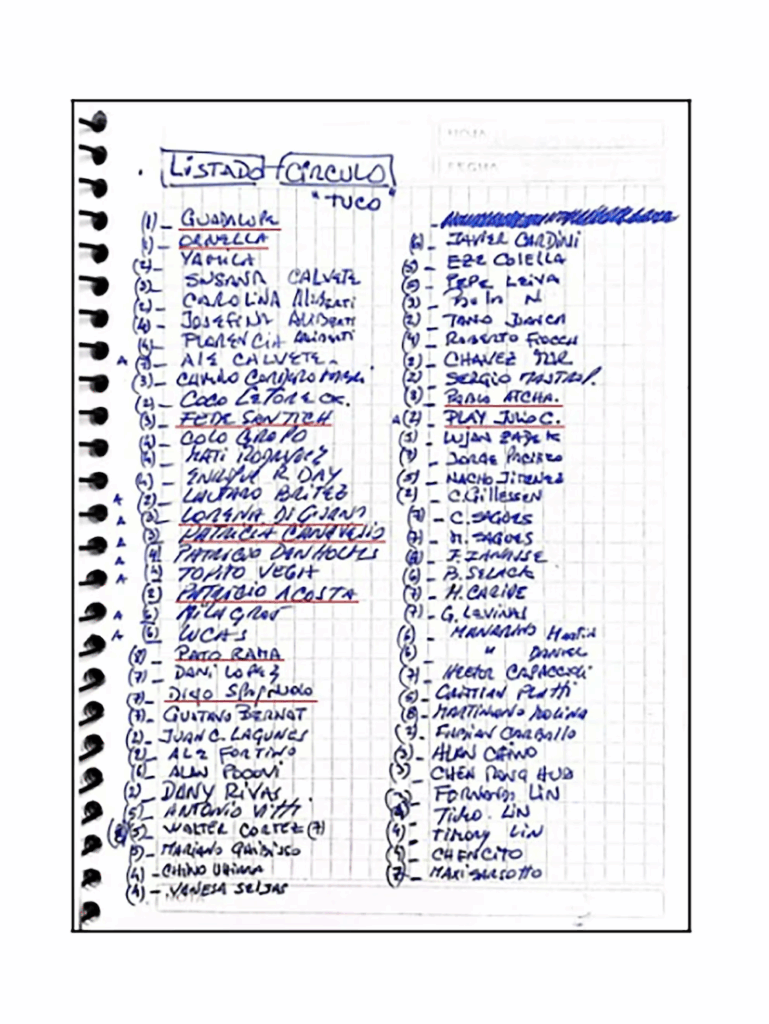 HOJA
FECHA
LISTADO - CÍRCULO
"TUCO"
(1) - GUADALUPE
(1) - ORNELLA
(2) - YAMILA
(3) - SUSANA CALVETE
(2) - CAROLINA ALIBERTI
(4) - JOSEFINA ALIBERTI
(4) - FLORENCIA ALIBERTI
A (7) - ALE CALVETE -
(3) - CAMILO CORDERO
(2) - COCO
(3) - FEDE SANTICH
(4) - COLO GROPO
(4) - MATI RODRIGUEZ
(4) - ENRIQUE R. DAY
A (2) - LAUTARO BRITEZ
A (2) - LORENA DI GIORNO
A (3) - PATRICIA CANAVELIO
A (4) - PATRICIO
A TOPITO VEGA
(2) - PATRICIO ACOSTA
A (6) - MILAGROS
A (6) - LUCAS
(8) - PATO RAMA
(7) - DANI LOPEZ
(7) - DIEGO SPAGNUOLO
(7) - GUSTAVO BERNAT
(2) - JUAN C. LAGUNES
(2) - ALE FORTINO
(6) - ALAN POCOVI
(2) - DANY RIVAS
(5) - ANTONIO VITTI
(5) - WALTER CORTEZ (7)
(5) - MARIANO GAIBISSO
(4) - CHINO
(4) - VANESA SEIJAS
(6) - JAVIER CARDINI
(5) - EZE COSELLA
(5) - PEPE LEIVA
(3) - N
(2) - TANO
(4) - ROBERTO FIOCCA
(2) - CHAVEZ
(2) - SERGIO MASTROP.
(8) - PABLO ATCHA.
A (2) - PLAY JULIO C.
(3) - LUJAN
(7) - JORGE PACIFICO
(5) - NACHO JIMENEZ
(2) - C. GILLESSEN
(7) - C. SAGUES
(7) - M. SAGUES
(8) - F. ZANASSE
(6) - B. SELACK
(7) - H. CARIDE
(7) - G. LAVINAS
(6) - MANARINO MARTIN
(6) - " DANIEL
(7) - HECTOR CAPACCIOLI
(6) - CRISTIAN PLATTI
(8) - MARTINIANO MOLINA
(7) - FABIAN CARBALLO
(3) - ALAN CHINO
(3) - CHEN RONG HUA
FERNANDO LIN
TIKO - LIN
(4) - TIMOTY LIN
(4) - CHENCITO
(7) - MAXI SARSOTTO
NOTA